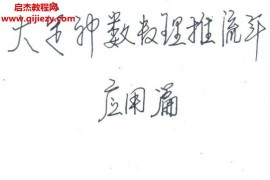 启杰教程网
www.gijiezy.com
大定神数数理推流年
应用篇